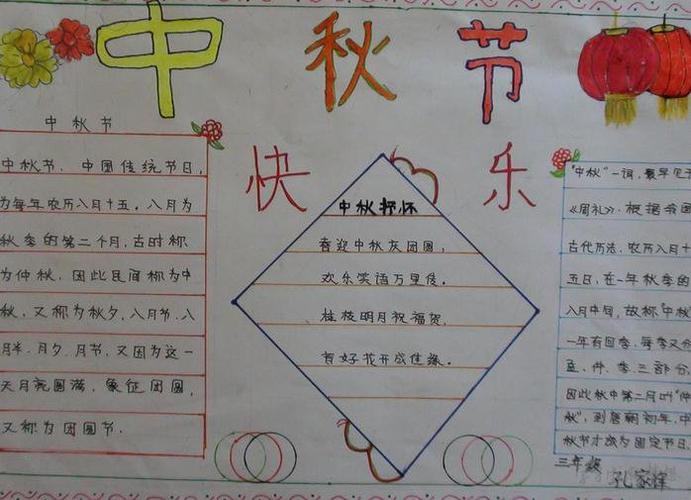 中秋节
快乐
中秋节
中秋节、中国传统节日,
为每年农历八月十五。八月为
秋季的第二个月,古时称
为仲秋,因此民间称为中
秋,又称为秋夕,八月节,八
月半、月夕、月节,又因为这一
天月亮圆满,象征团圆,
又称为团圆节.
中秋抒怀
喜迎中秋庆团圆,
欢乐笑语万里传。
桂枝明月祝福贺,
好花开成佳缘。
"中秋"一词,最早见于
《周礼》.根据我国
古代历法,农历八月十
五日,在一年秋季的
八月中旬,故称"中秋
一年有四季,每季又分
孟、仲、季、三部分,
因此秋中第二月叫"仲
秋",到唐朝初年,中
秋节才成为固定节日.
三年级
孔家